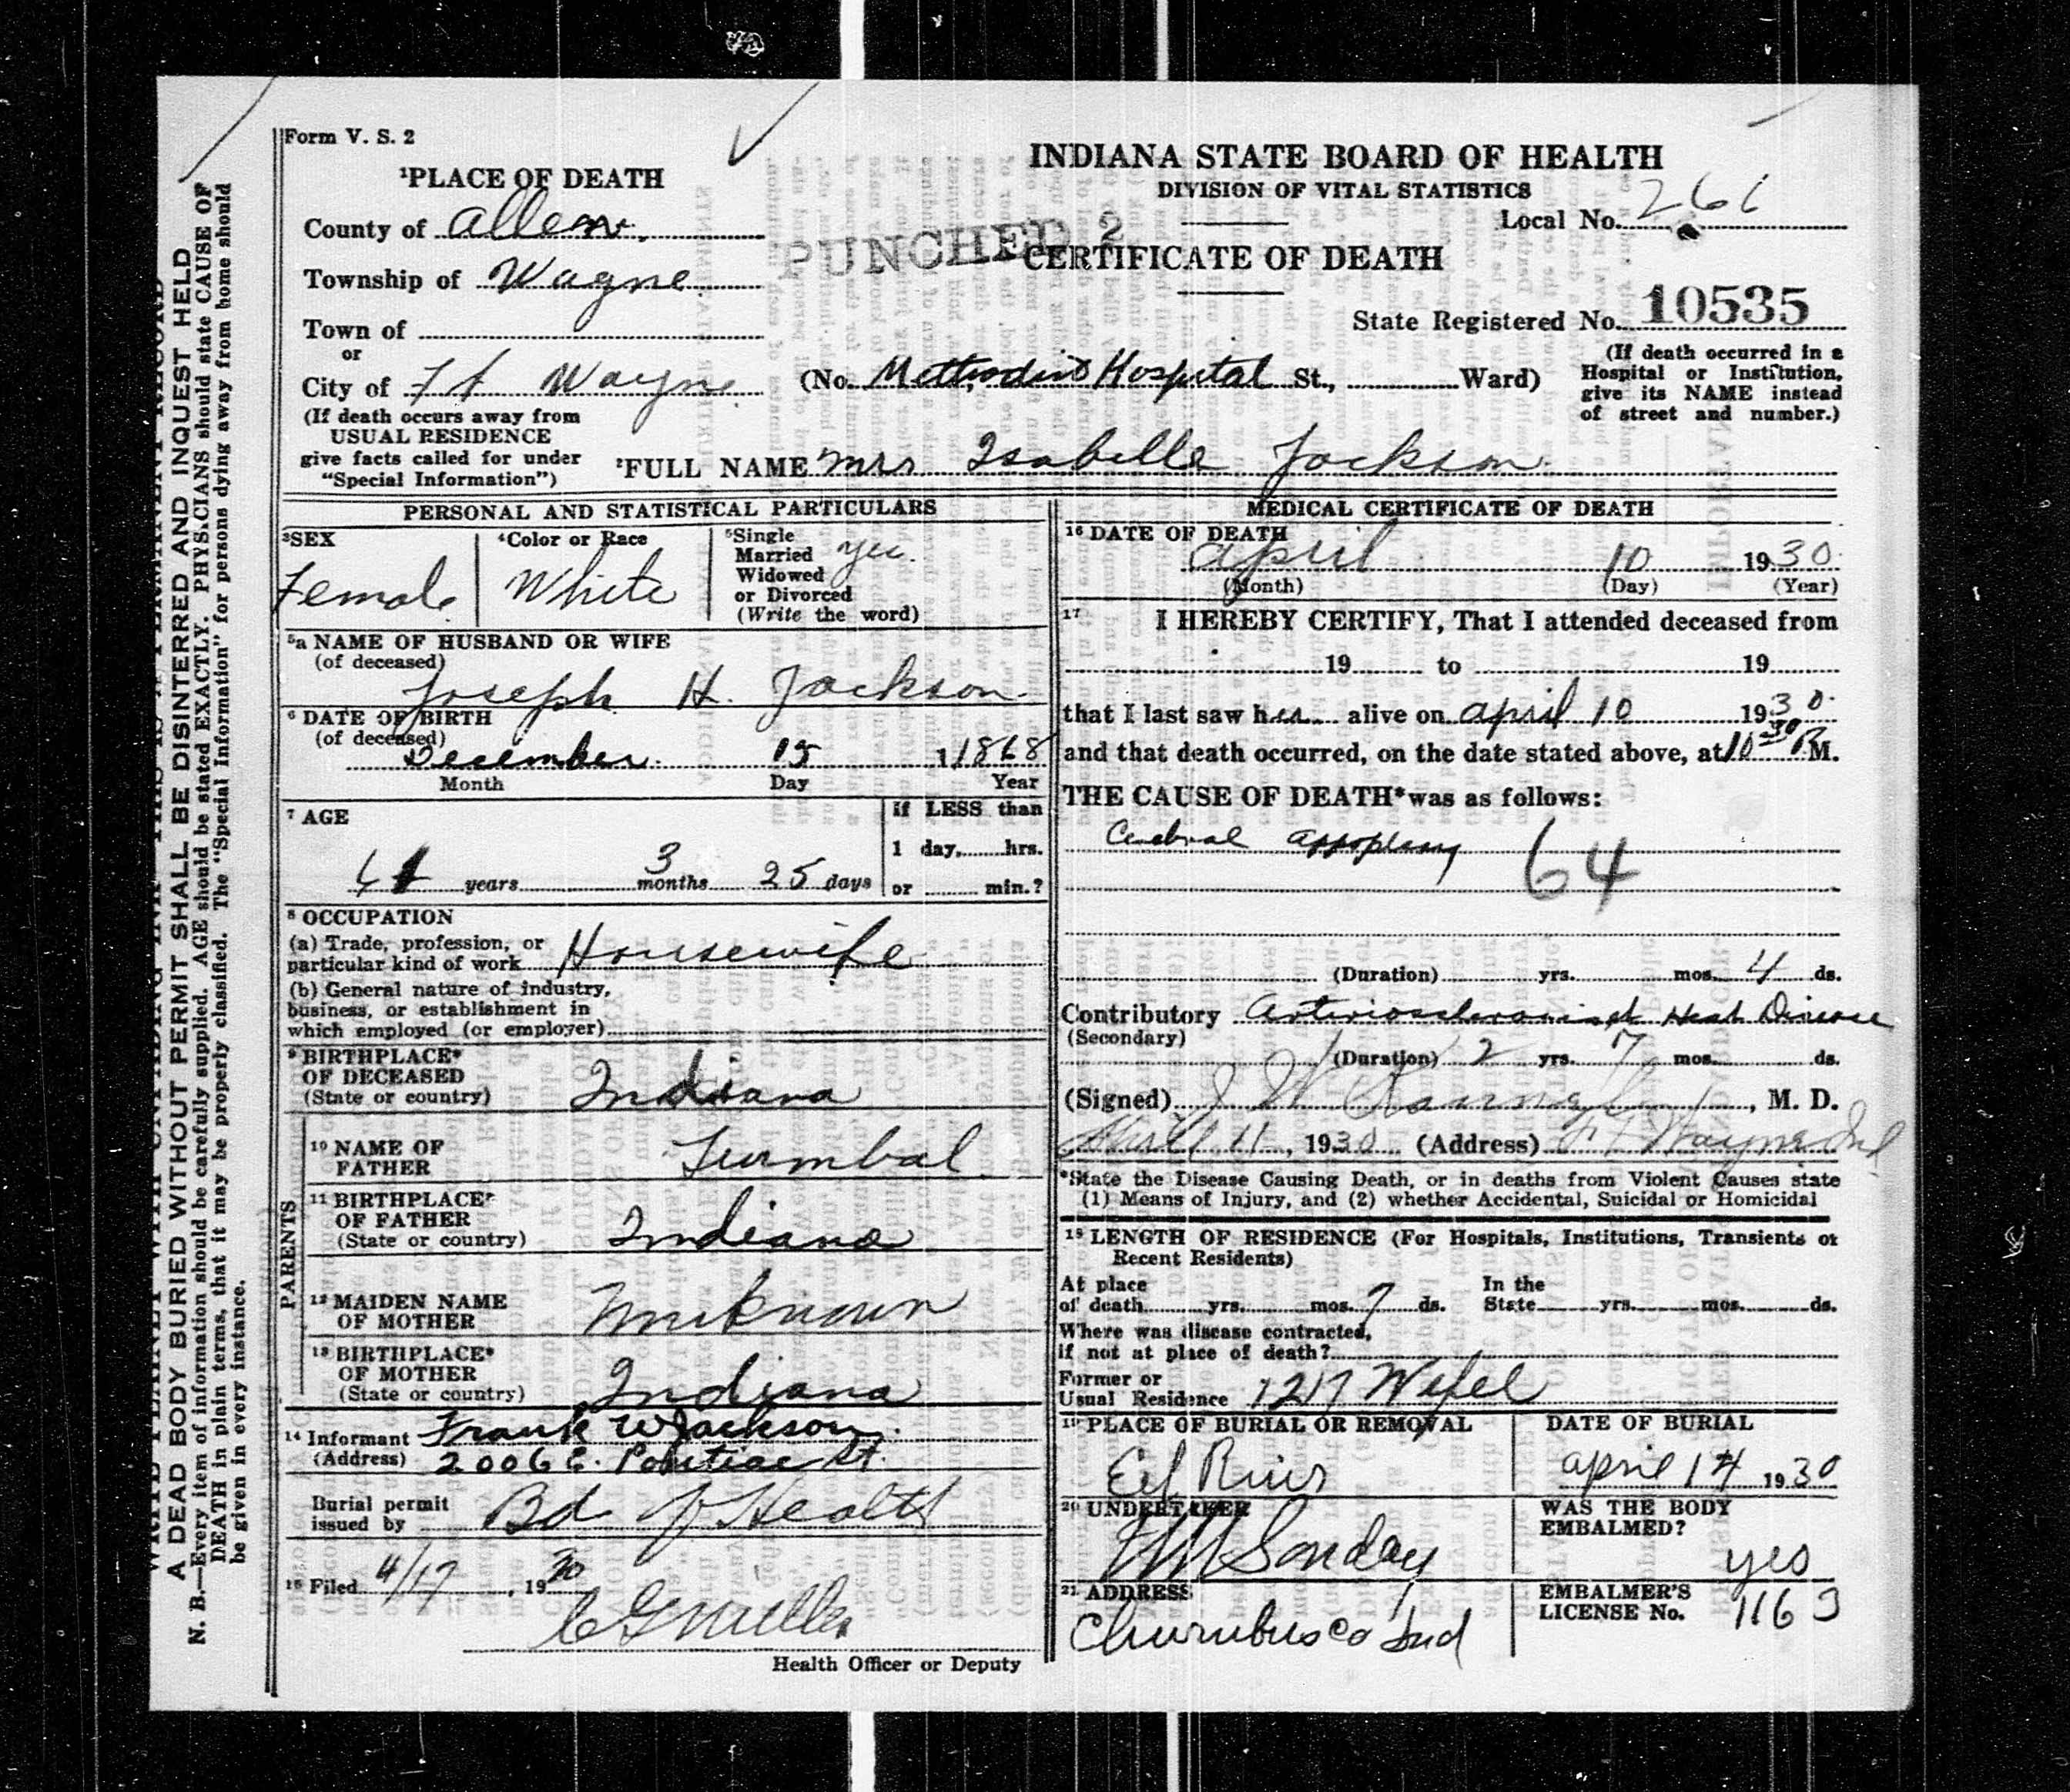 Form V. S. 2
¹PLACE OF DEATH
County of Allen
Township of Wayne
Town of
or
City of Ft Wayne
(If death occurs away from
USUAL RESIDENCE
give facts called for under
"Special Information")
PUNCHED 2
INDIANA STATE BOARD OF HEALTH
DIVISION OF VITAL STATISTICS
Local No. 266
CERTIFICATE OF DEATH
State Registered No. 10535
(No. Methodist Hospital St., Ward)
(If death occurred in a
Hospital or Institution,
give its NAME instead
of street and number.)
²FULL NAME Mrs Isabelle Jackson
PERSONAL AND STATISTICAL PARTICULARS
³SEX
Female
⁴Color or Race
White
⁵Single
Married yes
Widowed
or Divorced
(Write the word)
⁵a NAME OF HUSBAND OR WIFE
(of deceased)
Joseph H. Jackson
⁶ DATE OF BIRTH
(of deceased)
December 15 1 1868
Month Day Year
⁷ AGE
61 years 3 months 25 days
If LESS than
1 day, hrs.
or min.?
⁸ OCCUPATION
(a) Trade, profession, or
particular kind of work Housewife
(b) General nature of industry,
business, or establishment in
which employed (or employer)
⁹ BIRTHPLACE*
OF DECEASED
(State or country) Indiana
PARENTS
¹⁰ NAME OF
FATHER Turmbal
¹¹ BIRTHPLACE*
OF FATHER
(State or country) Indiana
¹² MAIDEN NAME
OF MOTHER Unknown
¹³ BIRTHPLACE*
OF MOTHER
(State or country) Indiana
¹⁴ Informant Frank W Jackson
(Address) 2006 E. Pontiac St.
Burial permit
issued by Bd of Health
¹⁵ Filed 4/17, 1930
Health Officer or Deputy
MEDICAL CERTIFICATE OF DEATH
¹⁶ DATE OF DEATH
April 10 1930
(Month) (Day) (Year)
¹⁷ I HEREBY CERTIFY, That I attended deceased from
19 to 19
that I last saw her alive on April 10 1930
and that death occurred, on the date stated above, at 10 30 P M.
THE CAUSE OF DEATH* was as follows:
Cerebral Appoplexy 64
(Duration) yrs. mos. 4 ds.
Contributory Arteriosclerosis Heart Disease
(Secondary)
(Duration) 2 yrs. 7 mos. ds.
(Signed) J W , M. D.
April 11, 1930 (Address) Ft Wayne Ind
*State the Disease Causing Death, or in deaths from Violent Causes state
(1) Means of Injury, and (2) whether Accidental, Suicidal or Homicidal
¹⁸ LENGTH OF RESIDENCE (For Hospitals, Institutions, Transients or
Recent Residents)
At place
of death yrs. mos. 7 ds.
In the
State yrs. mos. ds.
Where was disease contracted,
if not at place of death?
Former or
Usual Residence 1217 Wefel
¹⁹ PLACE OF BURIAL OR REMOVAL
Eel River
DATE OF BURIAL
April 14 1930
²⁰ UNDERTAKER
Sonday
WAS THE BODY
EMBALMED?
yes
²¹ ADDRESS
Churubusco Ind
EMBALMER'S
LICENSE No. 1163
A DEAD BODY BURIED WITHOUT PERMIT SHALL BE DISINTERRED AND INQUEST HELD
N. B.—Every item of information should be carefully supplied. AGE should be stated EXACTLY. PHYSICIANS should state CAUSE OF
DEATH in plain terms, that it may be properly classified. The "Special Information" for persons dying away from home should
be given in every instance.